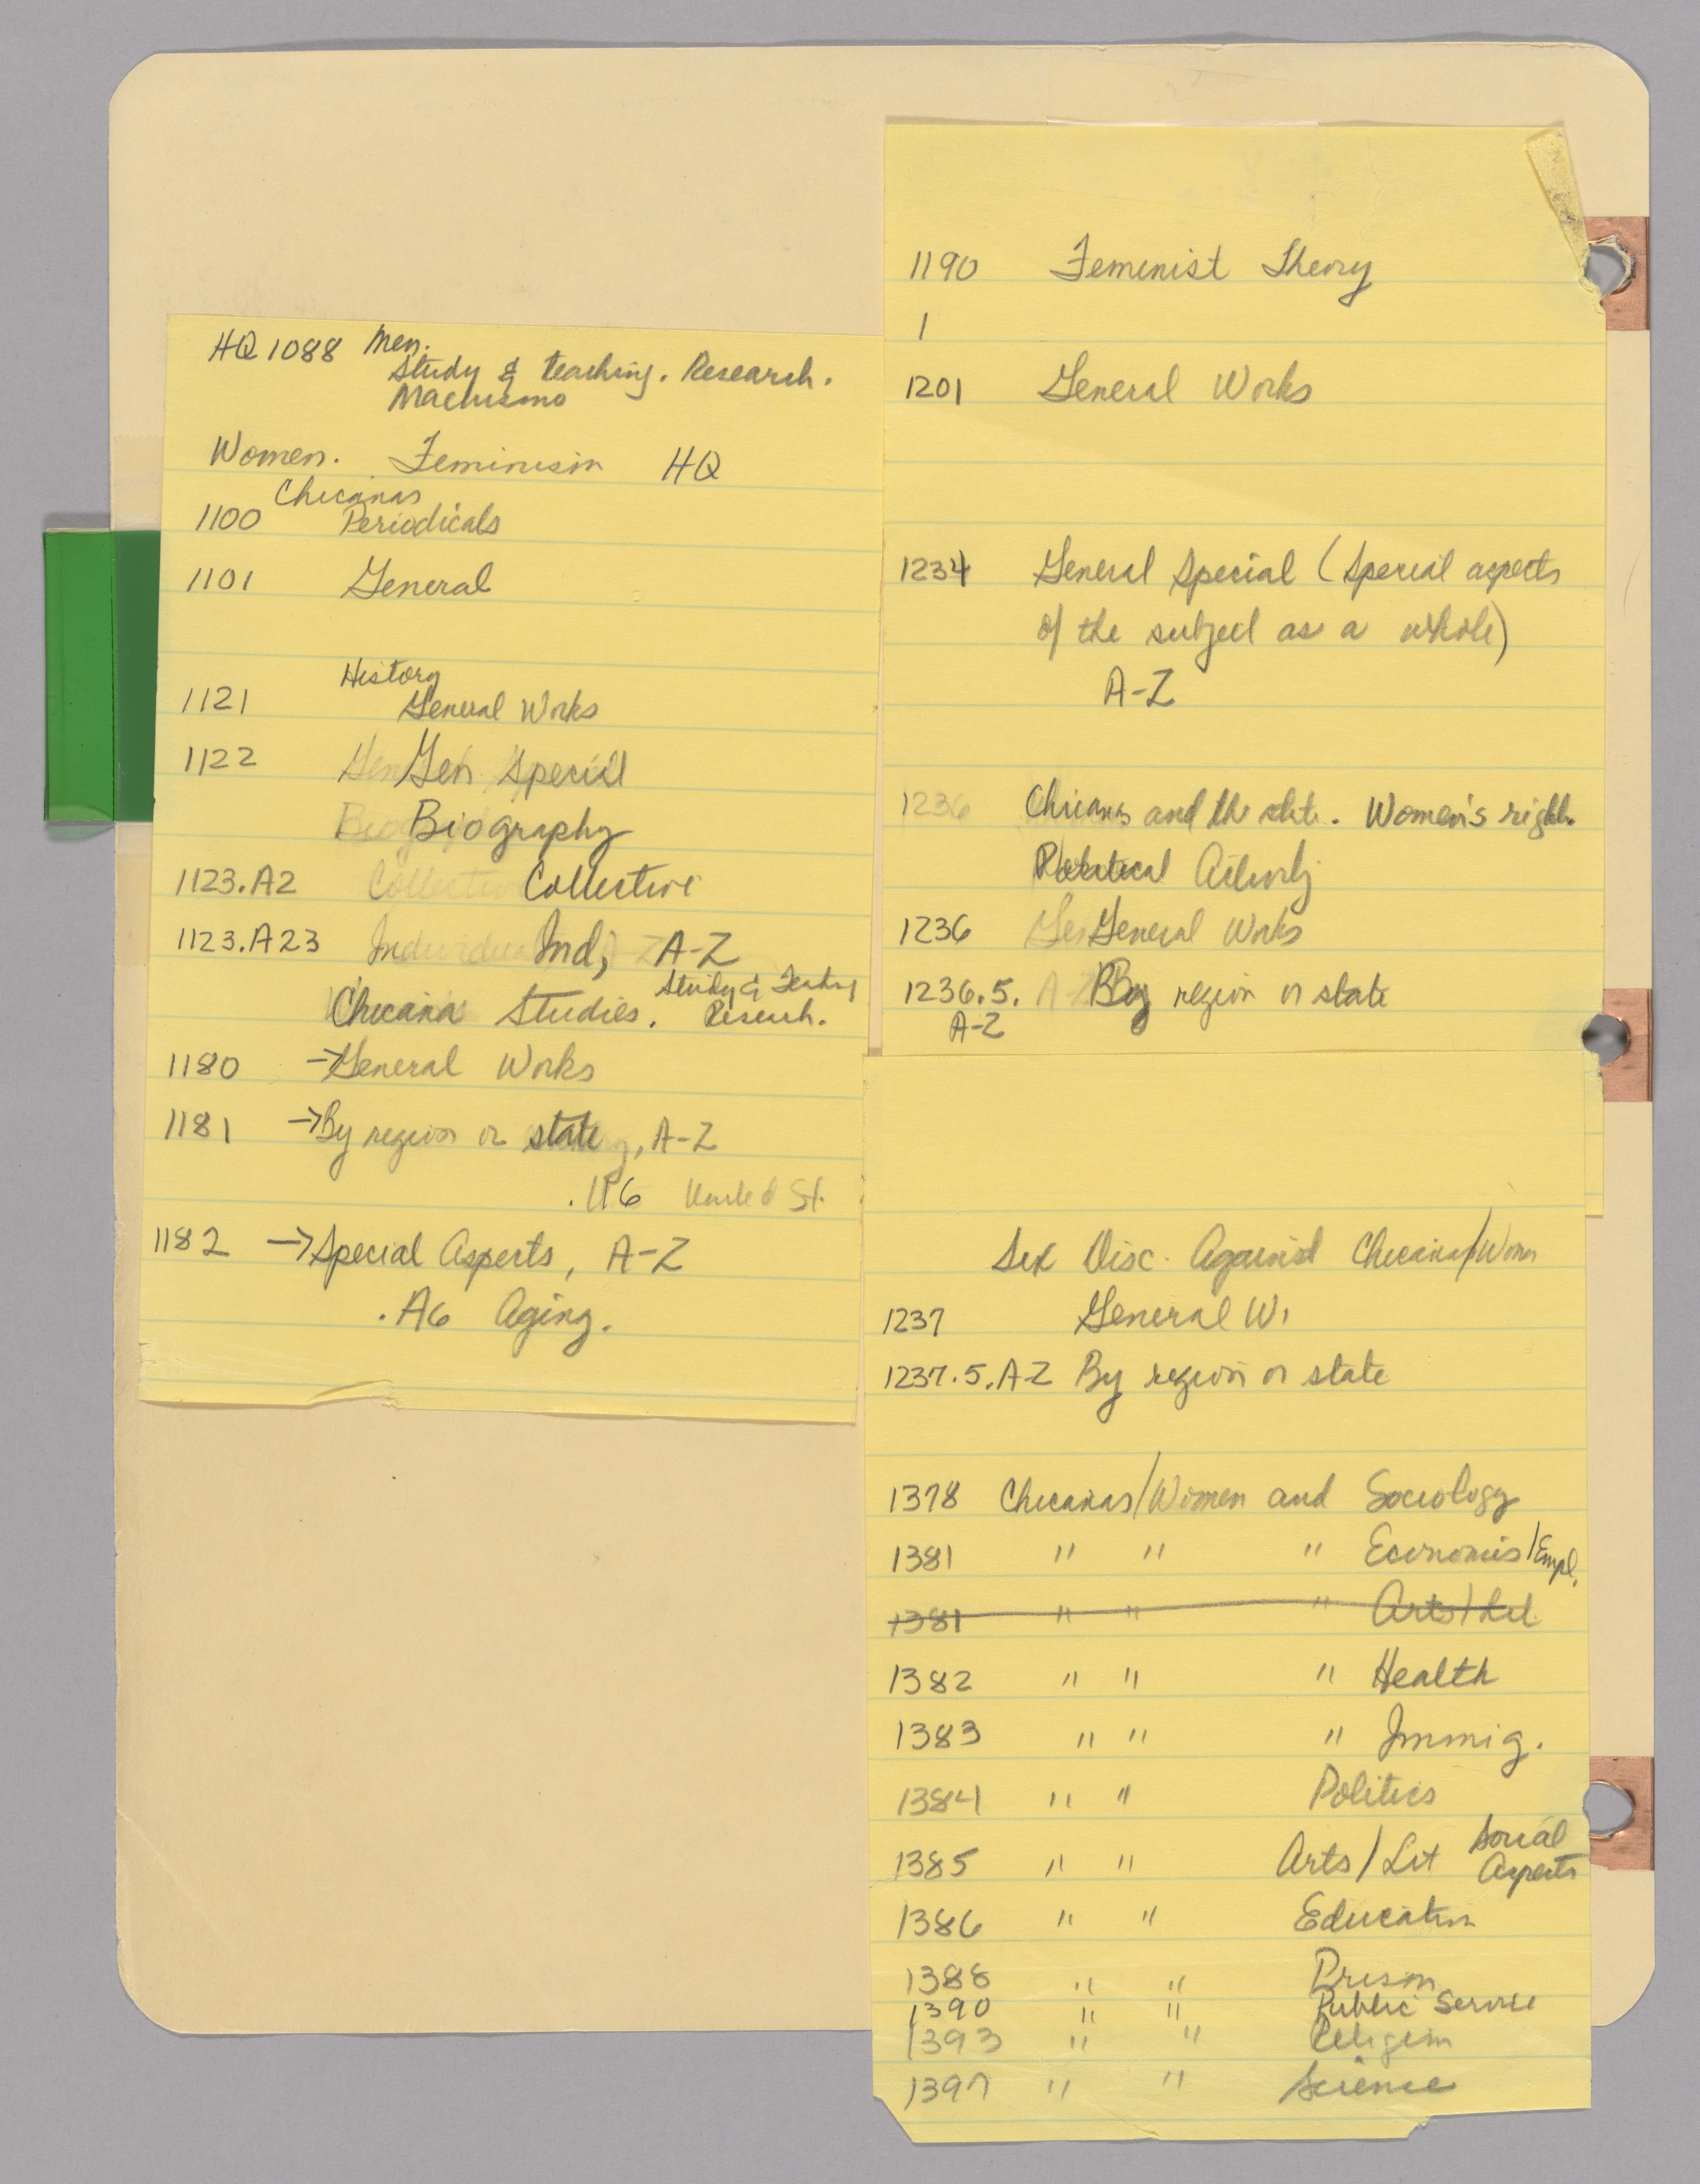 HQ 1088 Men.
Study & teaching. Research.
Machismo
Women. Feminism HQ
Chicanas
1100 Periodicals
1101 General
History
1121 General Works
1122 Gen. Special
Biography
1123.A2 Collective
1123.A23 Ind, A-Z
Chicana Studies. Study & Teachg
Research.
1180 →General Works
1181 →By region or state, A-Z
.U6 United St.
1182 →Special Aspects, A-Z
.A6 Aging.
1190 Feminist Theory
1
1201 General Works
1234 General Special (Special aspects
of the subject as a whole)
A-Z
1236 Chicanas and the state. Women's rights.
Political Activity
1236 General Works
1236.5. By region or state
A-Z
Sex Disc. Against Chicanas/Women
1237 General W.
1237.5.A-Z By region or state
1378 Chicanas/Women and Sociology
1381 " " " Economics/Empl.
1381 " " " Arts/Lit
1382 " " " Health
1383 " " " Immig.
1384 " " Politics
1385 " " Arts/Lit Social
Aspects
1386 " " Education
1388 " " Prison
1390 " " Public Service
1393 " " Religion
1397 " " Science